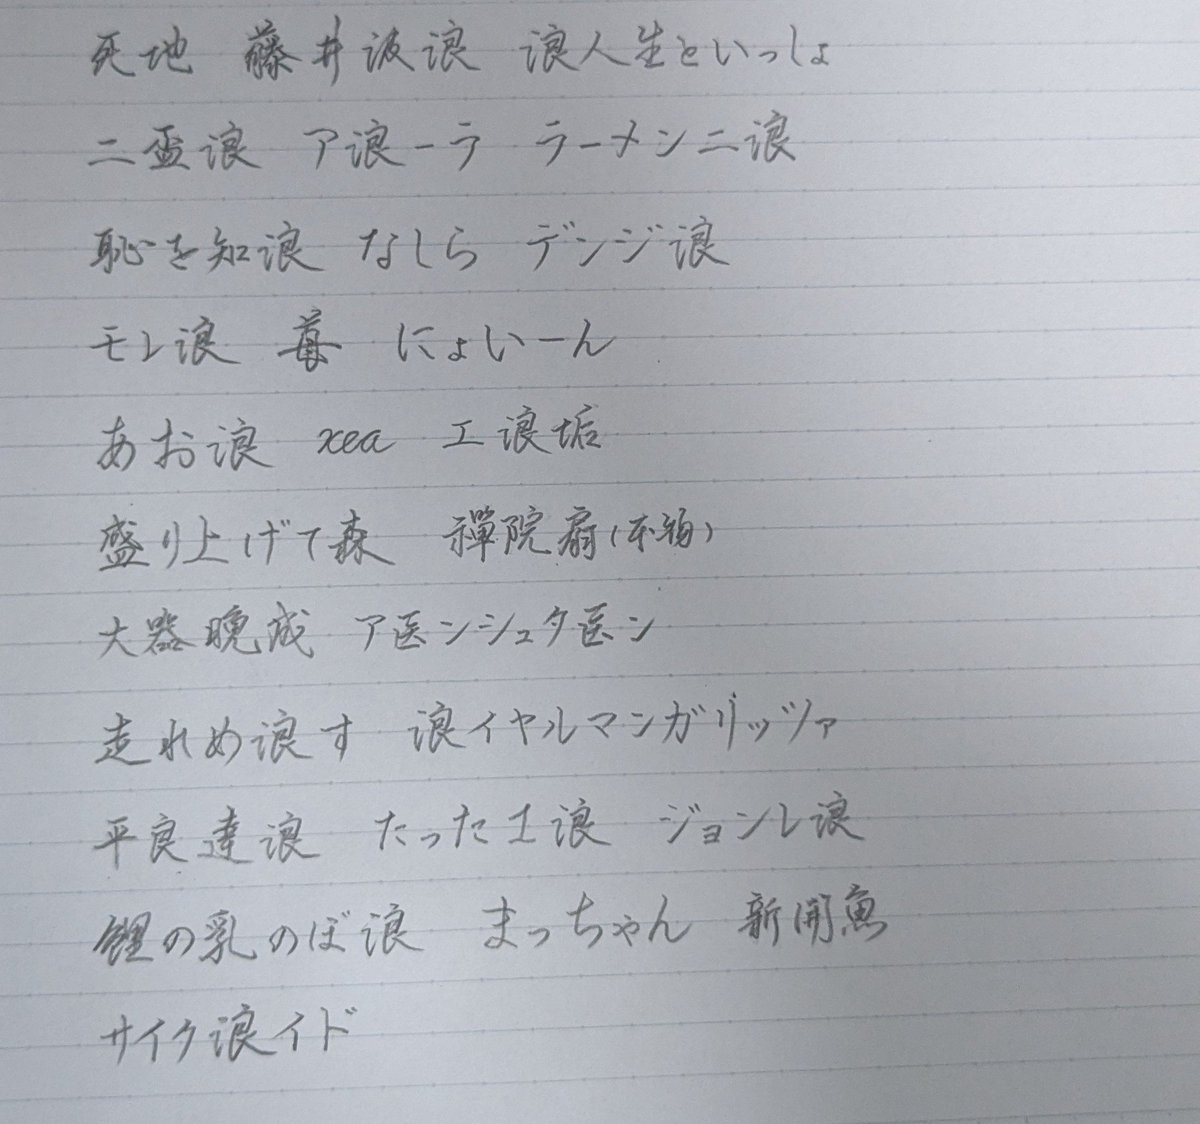 死地　藤井波浪　浪人生といっしょ
二盃浪　ア浪ーラ　ラーメン二浪
恥を知浪　なしら　デンジ浪
モレ浪　苺　にょいーん
あお浪　xea　工浪垢
盛り上げて森　禪院扇(本物)
大器晩成　ア医ンシュタ医ン
走れめ浪す　浪イヤルマンガリッツァ
平良達浪　たった1浪　ジョンレ浪
鯉の乳のぼ浪　まっちゃん　新開魚
サイク浪イド